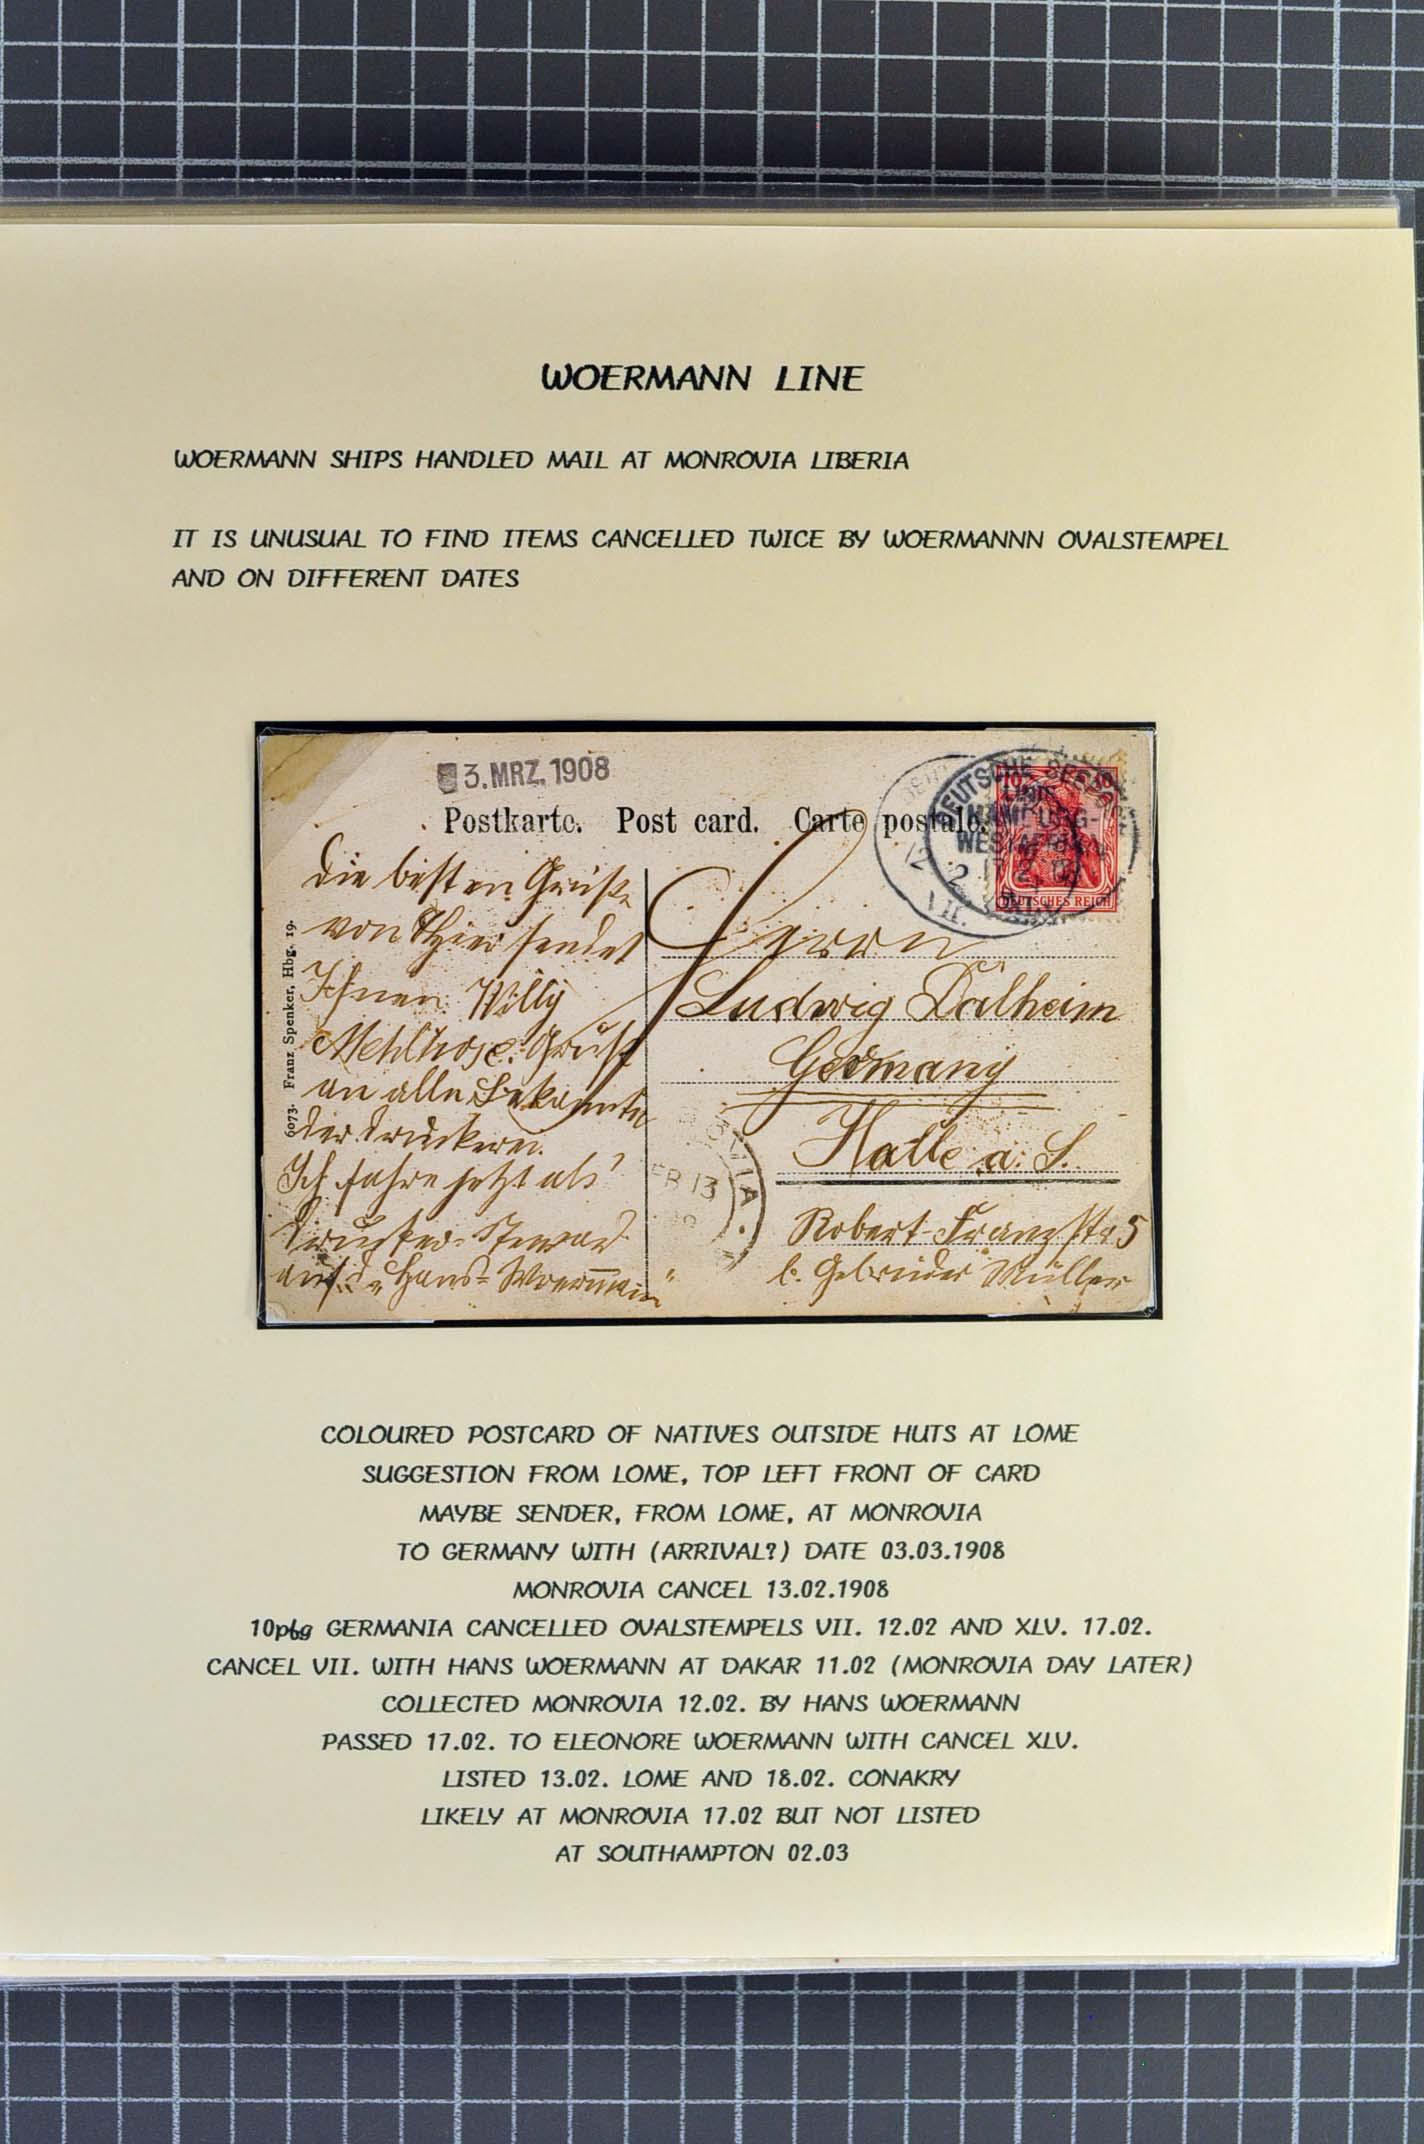 WOERMANN LINE
WOERMANN SHIPS HANDLED MAIL AT MONROVIA LIBERIA
IT IS UNUSUAL TO FIND ITEMS CANCELLED TWICE BY WOERMANNN OVALSTEMPEL
AND ON DIFFERENT DATES
3. MRZ. 1908
Postkarte. Post card. Carte postale.
DEUTSCHE SEEPOST
LINIE
HAMBURG-
WESTAFRIKA
17 2
12 2
VII
10
DEUTSCHES REICH
die besten Grüße
von hier sendet
Ihnen Willy
Mehlhose. Gruß
an alle Bekannte
der Druckerei.
Ich fahre jetzt als
Drucker-Steward
auf d. „Hans-Woermann"
6073. Franz Spenker, Hbg. 19.
Herrn
Ludwig Dalheim
Germany
Halle a. S.
Robert-Franzstr 5
b. Gebrüder Müller
OVIA
FEB 13
COLOURED POSTCARD OF NATIVES OUTSIDE HUTS AT LOME
SUGGESTION FROM LOME, TOP LEFT FRONT OF CARD
MAYBE SENDER, FROM LOME, AT MONROVIA
TO GERMANY WITH (ARRIVAL?) DATE 03.03.1908
MONROVIA CANCEL 13.02.1908
10pfg GERMANIA CANCELLED OVALSTEMPELS VII. 12.02 AND XLV. 17.02.
CANCEL VII. WITH HANS WOERMANN AT DAKAR 11.02 (MONROVIA DAY LATER)
COLLECTED MONROVIA 12.02. BY HANS WOERMANN
PASSED 17.02. TO ELEONORE WOERMANN WITH CANCEL XLV.
LISTED 13.02. LOME AND 18.02. CONAKRY
LIKELY AT MONROVIA 17.02 BUT NOT LISTED
AT SOUTHAMPTON 02.03